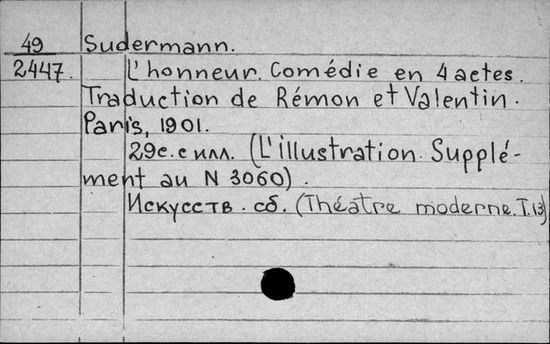 49 Sudermann.
2447. L'honneur. Comédie en 4 actes.
Traduction de Rémon et Valentin.
Paris, 1901.
29с. с илл. (L'illustration. Supplé-
ment au N 3060).
Искусств. сб. (Théâtre moderne. T.13)